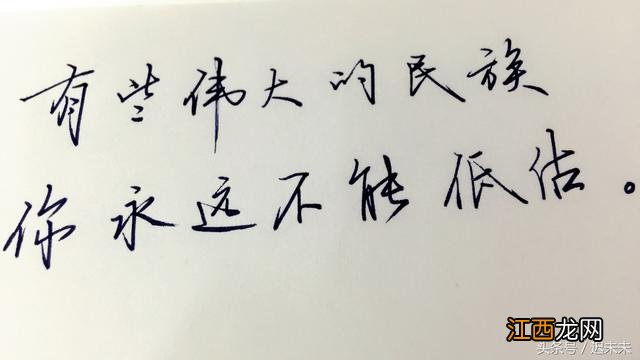 有些伟大的民族
你永远不能低估。
江西龙网
头条号／迟未未